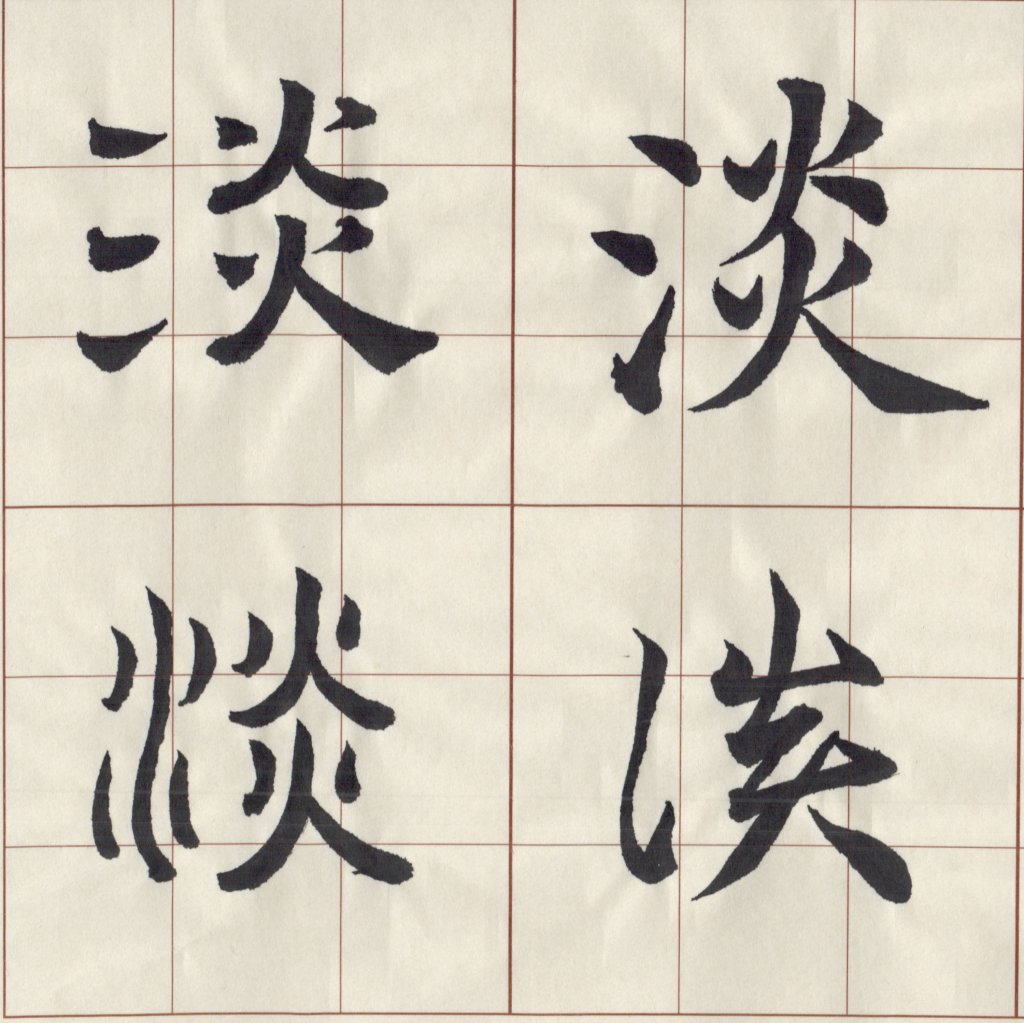 淡淡
淡淡